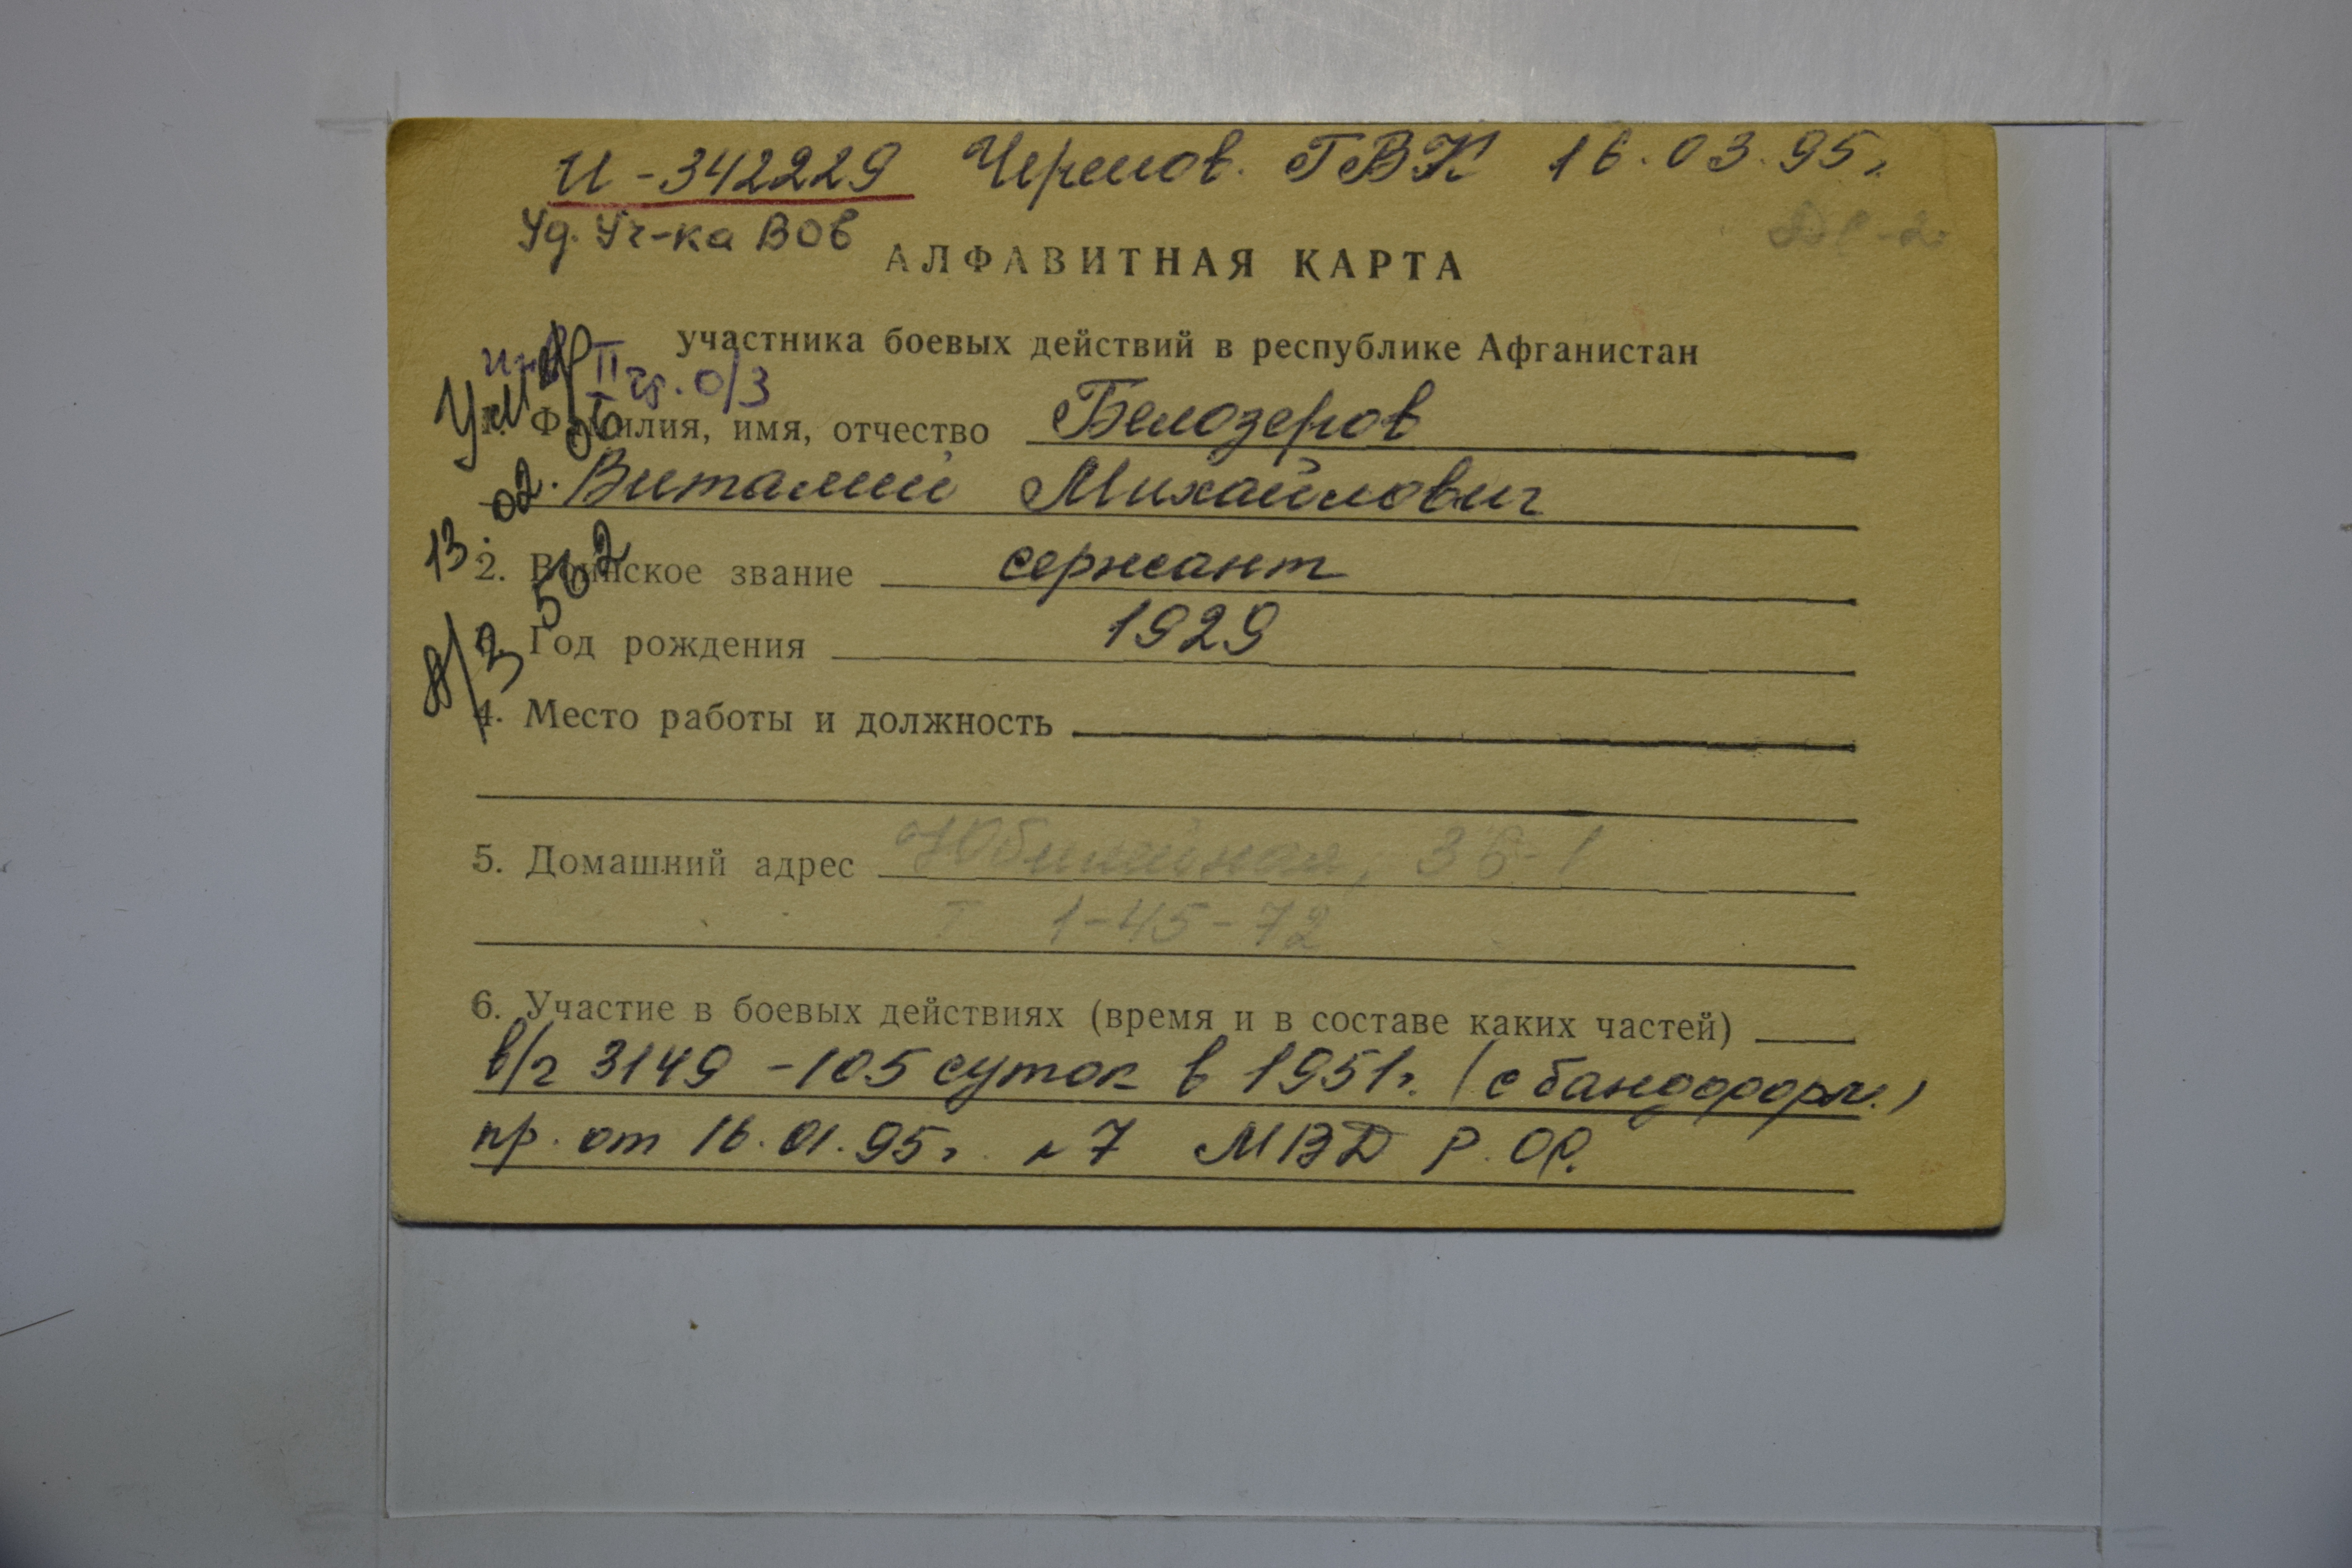 И-342229 Черемов. ГВК 16.03.95г.
Уд. Уч-ка ВОв
АЛФАВИТНАЯ КАРТА
участника боевых действий в республике Афганистан
II гр. о/з
1. Фамилия, имя, отчество Белозеров
Виталий Михайлович
2. Воинское звание сержант
Год рождения 1929
4. Место работы и должность
5. Домашний адрес Юбилейная, 36-1
Т 1-45-72
6. Участие в боевых действиях (время и в составе каких частей)
в/ч 3149 - 105 суток в 1951г. (с бандформ.)
пр. от 16.01.95г. н 7 МВД Р.Ф.